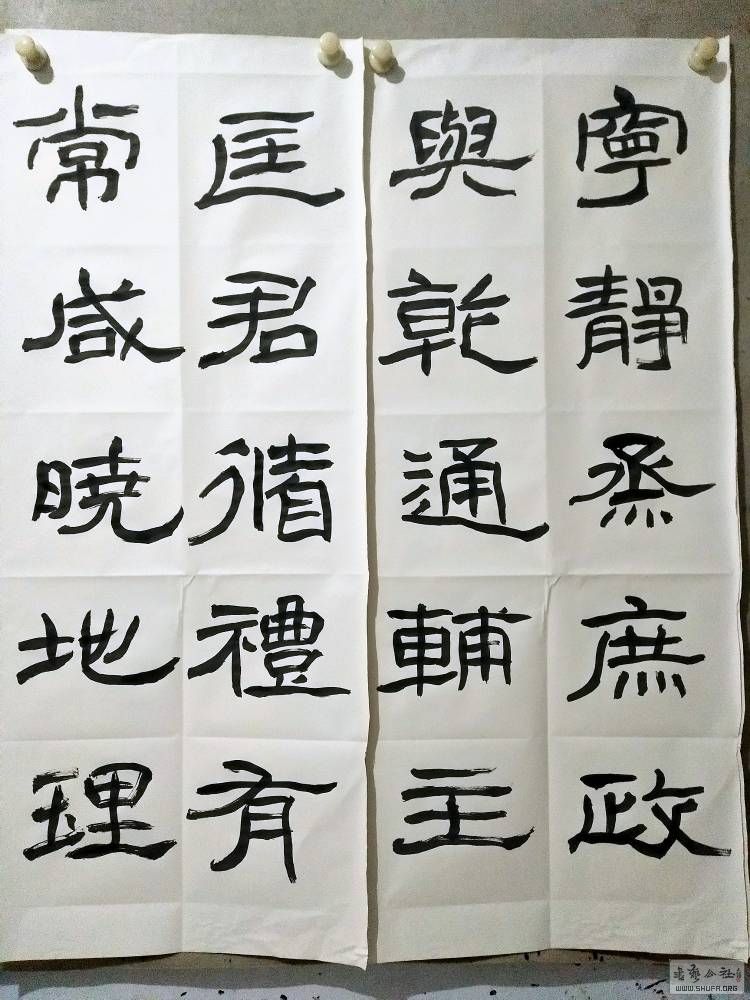 寧靜烝庶政
與乾通輔主
匡君循禮有
常咸曉地理
书艺公社
WWW.SHUFA.ORG